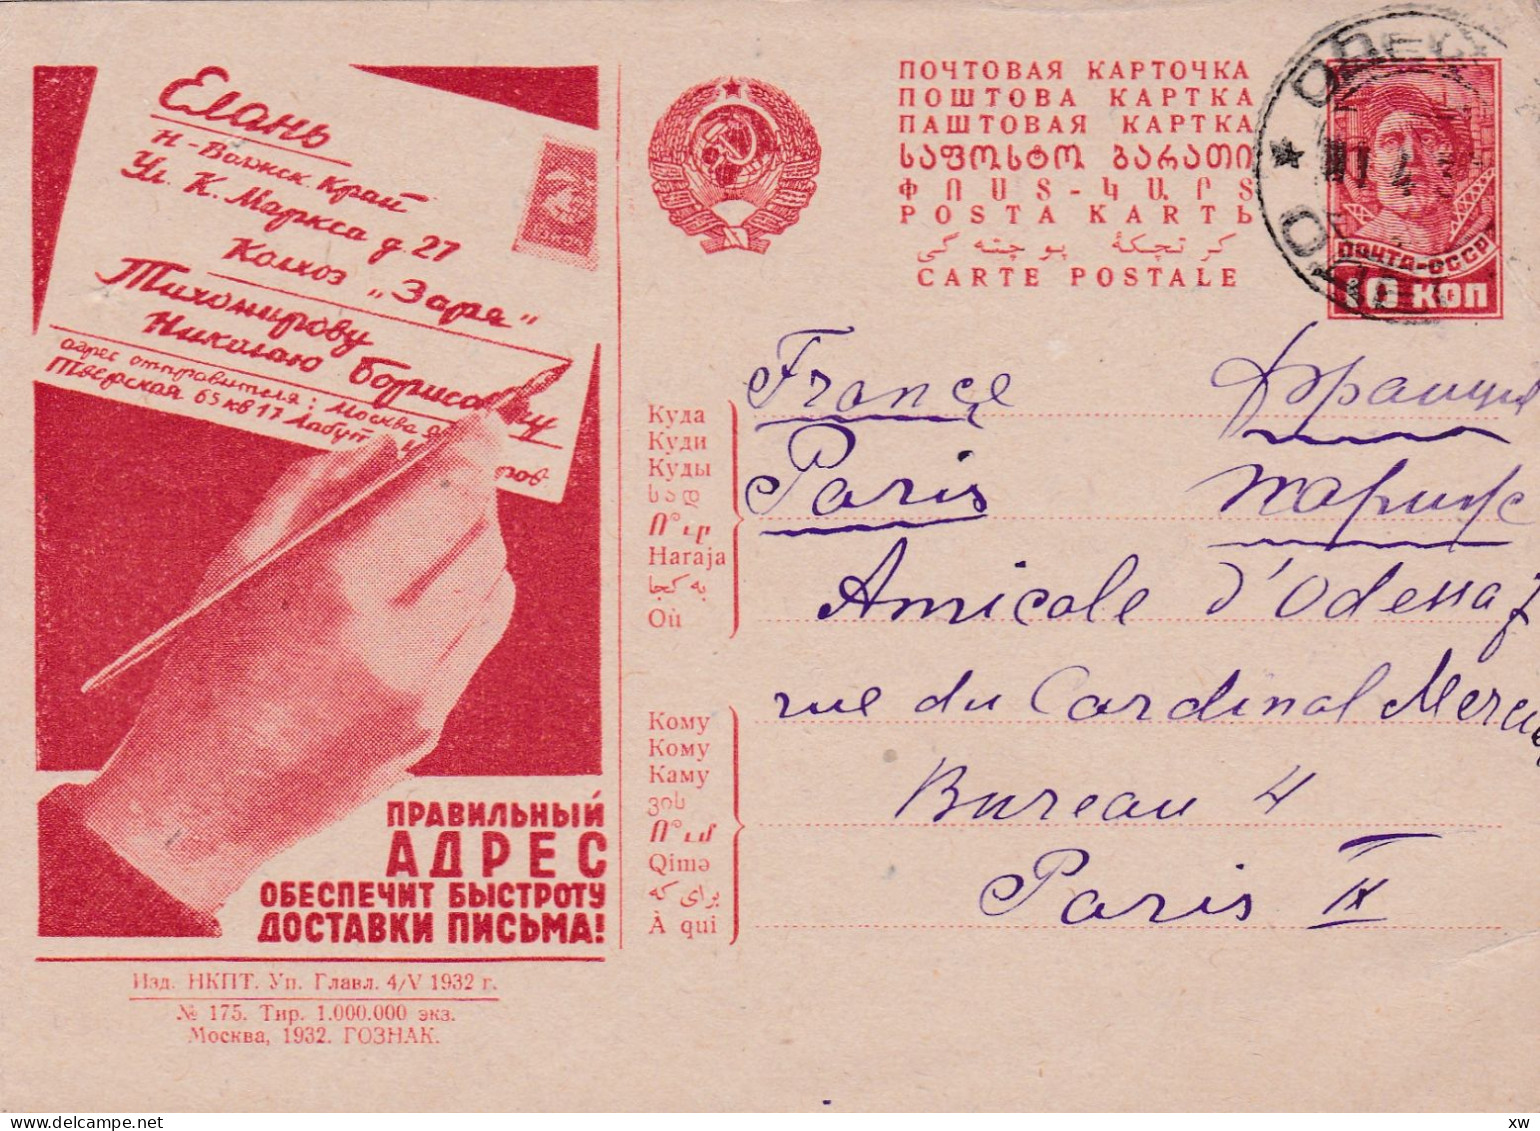 Елань
Н-Волжск. Край
Ул. К. Маркса д. 27
Колхоз „Заря"
Тихомирову
Николаю Борисовичу
адрес отправителя: Москва
Тверская 65 кв 17 Лабут
ров
ПРАВИЛЬНЫЙ
АДРЕС
ОБЕСПЕЧИТ БЫСТРОТУ
ДОСТАВКИ ПИСЬМА!
Изд. НКПТ. Уп. Главл. 4/V 1932 г.
№ 175. Тир. 1.000.000 экз.
Москва, 1932. ГОЗНАК.
ПОЧТОВАЯ КАРТОЧКА
ПОШТОВА КАРТКА
ПАШТОВАЯ КАРТКА
ᲡᲐᲤᲝᲡᲢᲝ ᲑᲐᲠᲐᲗᲘ
ΦՈՍՏ-ՔԱՐՏ
POSTA KARTЬ
CARTE POSTALE
ОДЕС
1 4 3
ПОЧТА-СССР
10 КОП
Куда
Куди
Куды
სად
Ո՞ւր
Haraja
به کجا
Où
Кому
Кому
Каму
ვის
Ո՞ւմ
Qimə
برای که
À qui
France Франция
Paris Париж
Amicale d'Odessa 7
rue du Cardinal Mercie
Bureau 4
Paris IX
xw